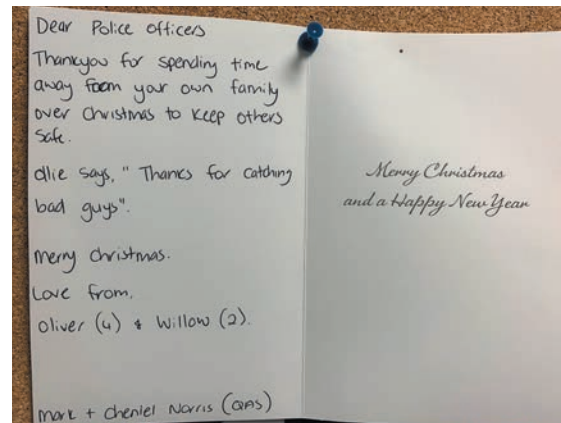 Dear Police officers
Thankyou for spending time
away from your own family
over Christmas to keep others
safe.
Ollie says, " Thanks for catching
bad guys".
merry christmas.
Love from,
Oliver (4) & Willow (2).
Mark + Cheniel Norris (QAS)
Merry Christmas
and a Happy New Year